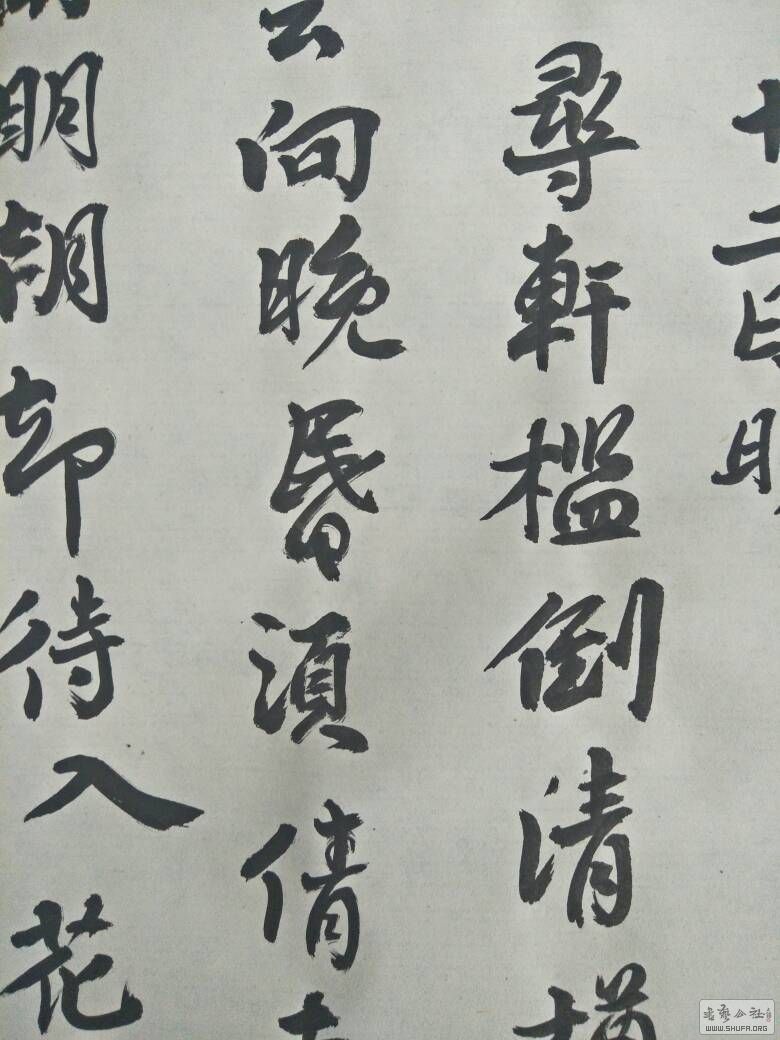 十二
尋軒檻倒清樽
云向晚昏須倩
明朝却待入花
書藝公社
WWW.SHUFA.ORG